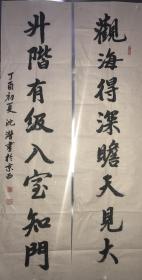 觀海得深瞻天見大
升階有級入室知門
丁酉初夏沈潜書於京西